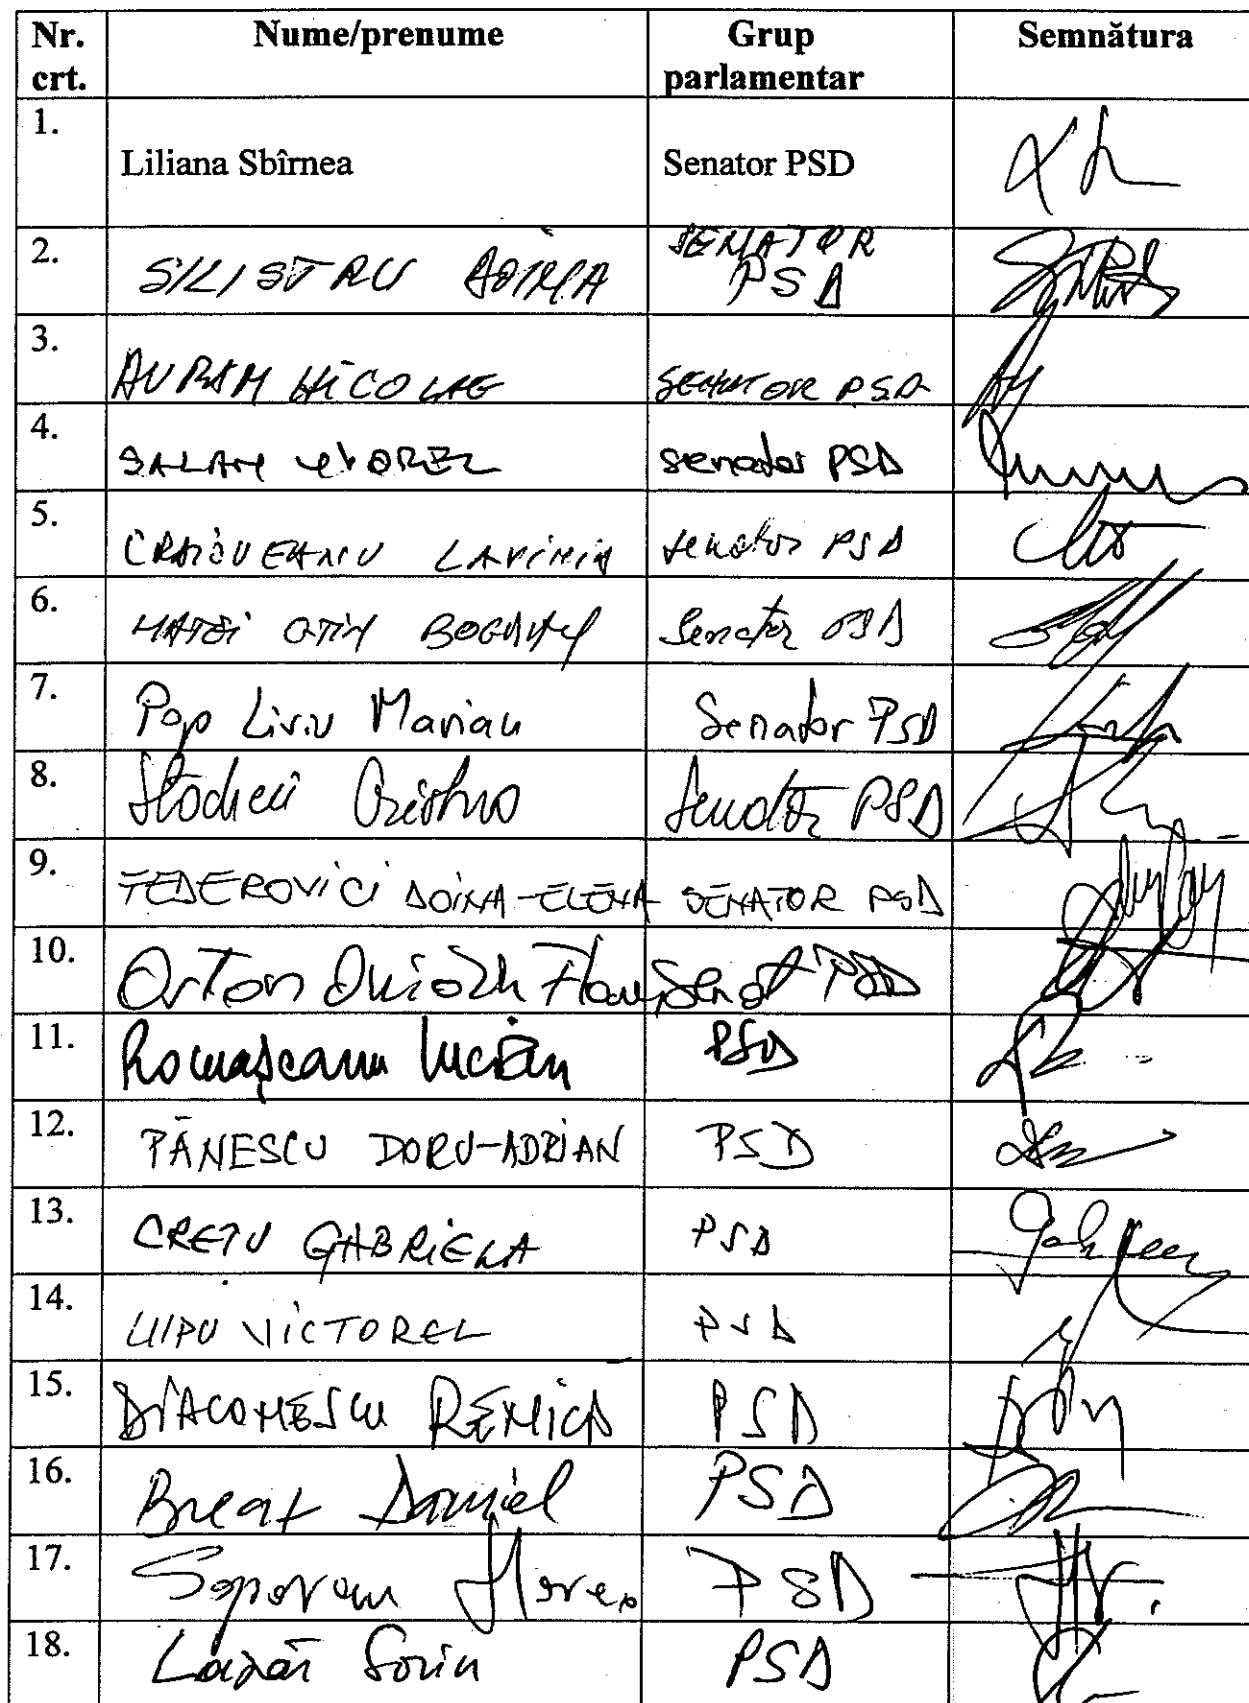 Nr. crt. Nume/prenume Grup parlamentar Semnătura
1. Liliana Sbîrnea Senator PSD
2. SILISTRU DOINA SENATOR PSD
3. AVRAM NICOLAE SENATOR PSD
4. SALAN VIOREL senator PSD
5. CRAIOVEANU LAVINIA senator PSD
6. MATEI BOGDAN Senator PSD
7. Pop Liviu Marian Senator PSD
8. Senator PSD
9. FEDEROVICI DOINA-ELENA SENATOR PSD
10. Senat PSD
11. Romașcanu Lucian PSD
12. PĂNESCU DORU-ADRIAN PSD
13. CRETU GABRIELA PSD
14. LUPU VICTOREL PSD
15. DIACONESCU RENICA PSD
16. Daniel PSD
17. PSD
18. Lazăr Sorin PSD